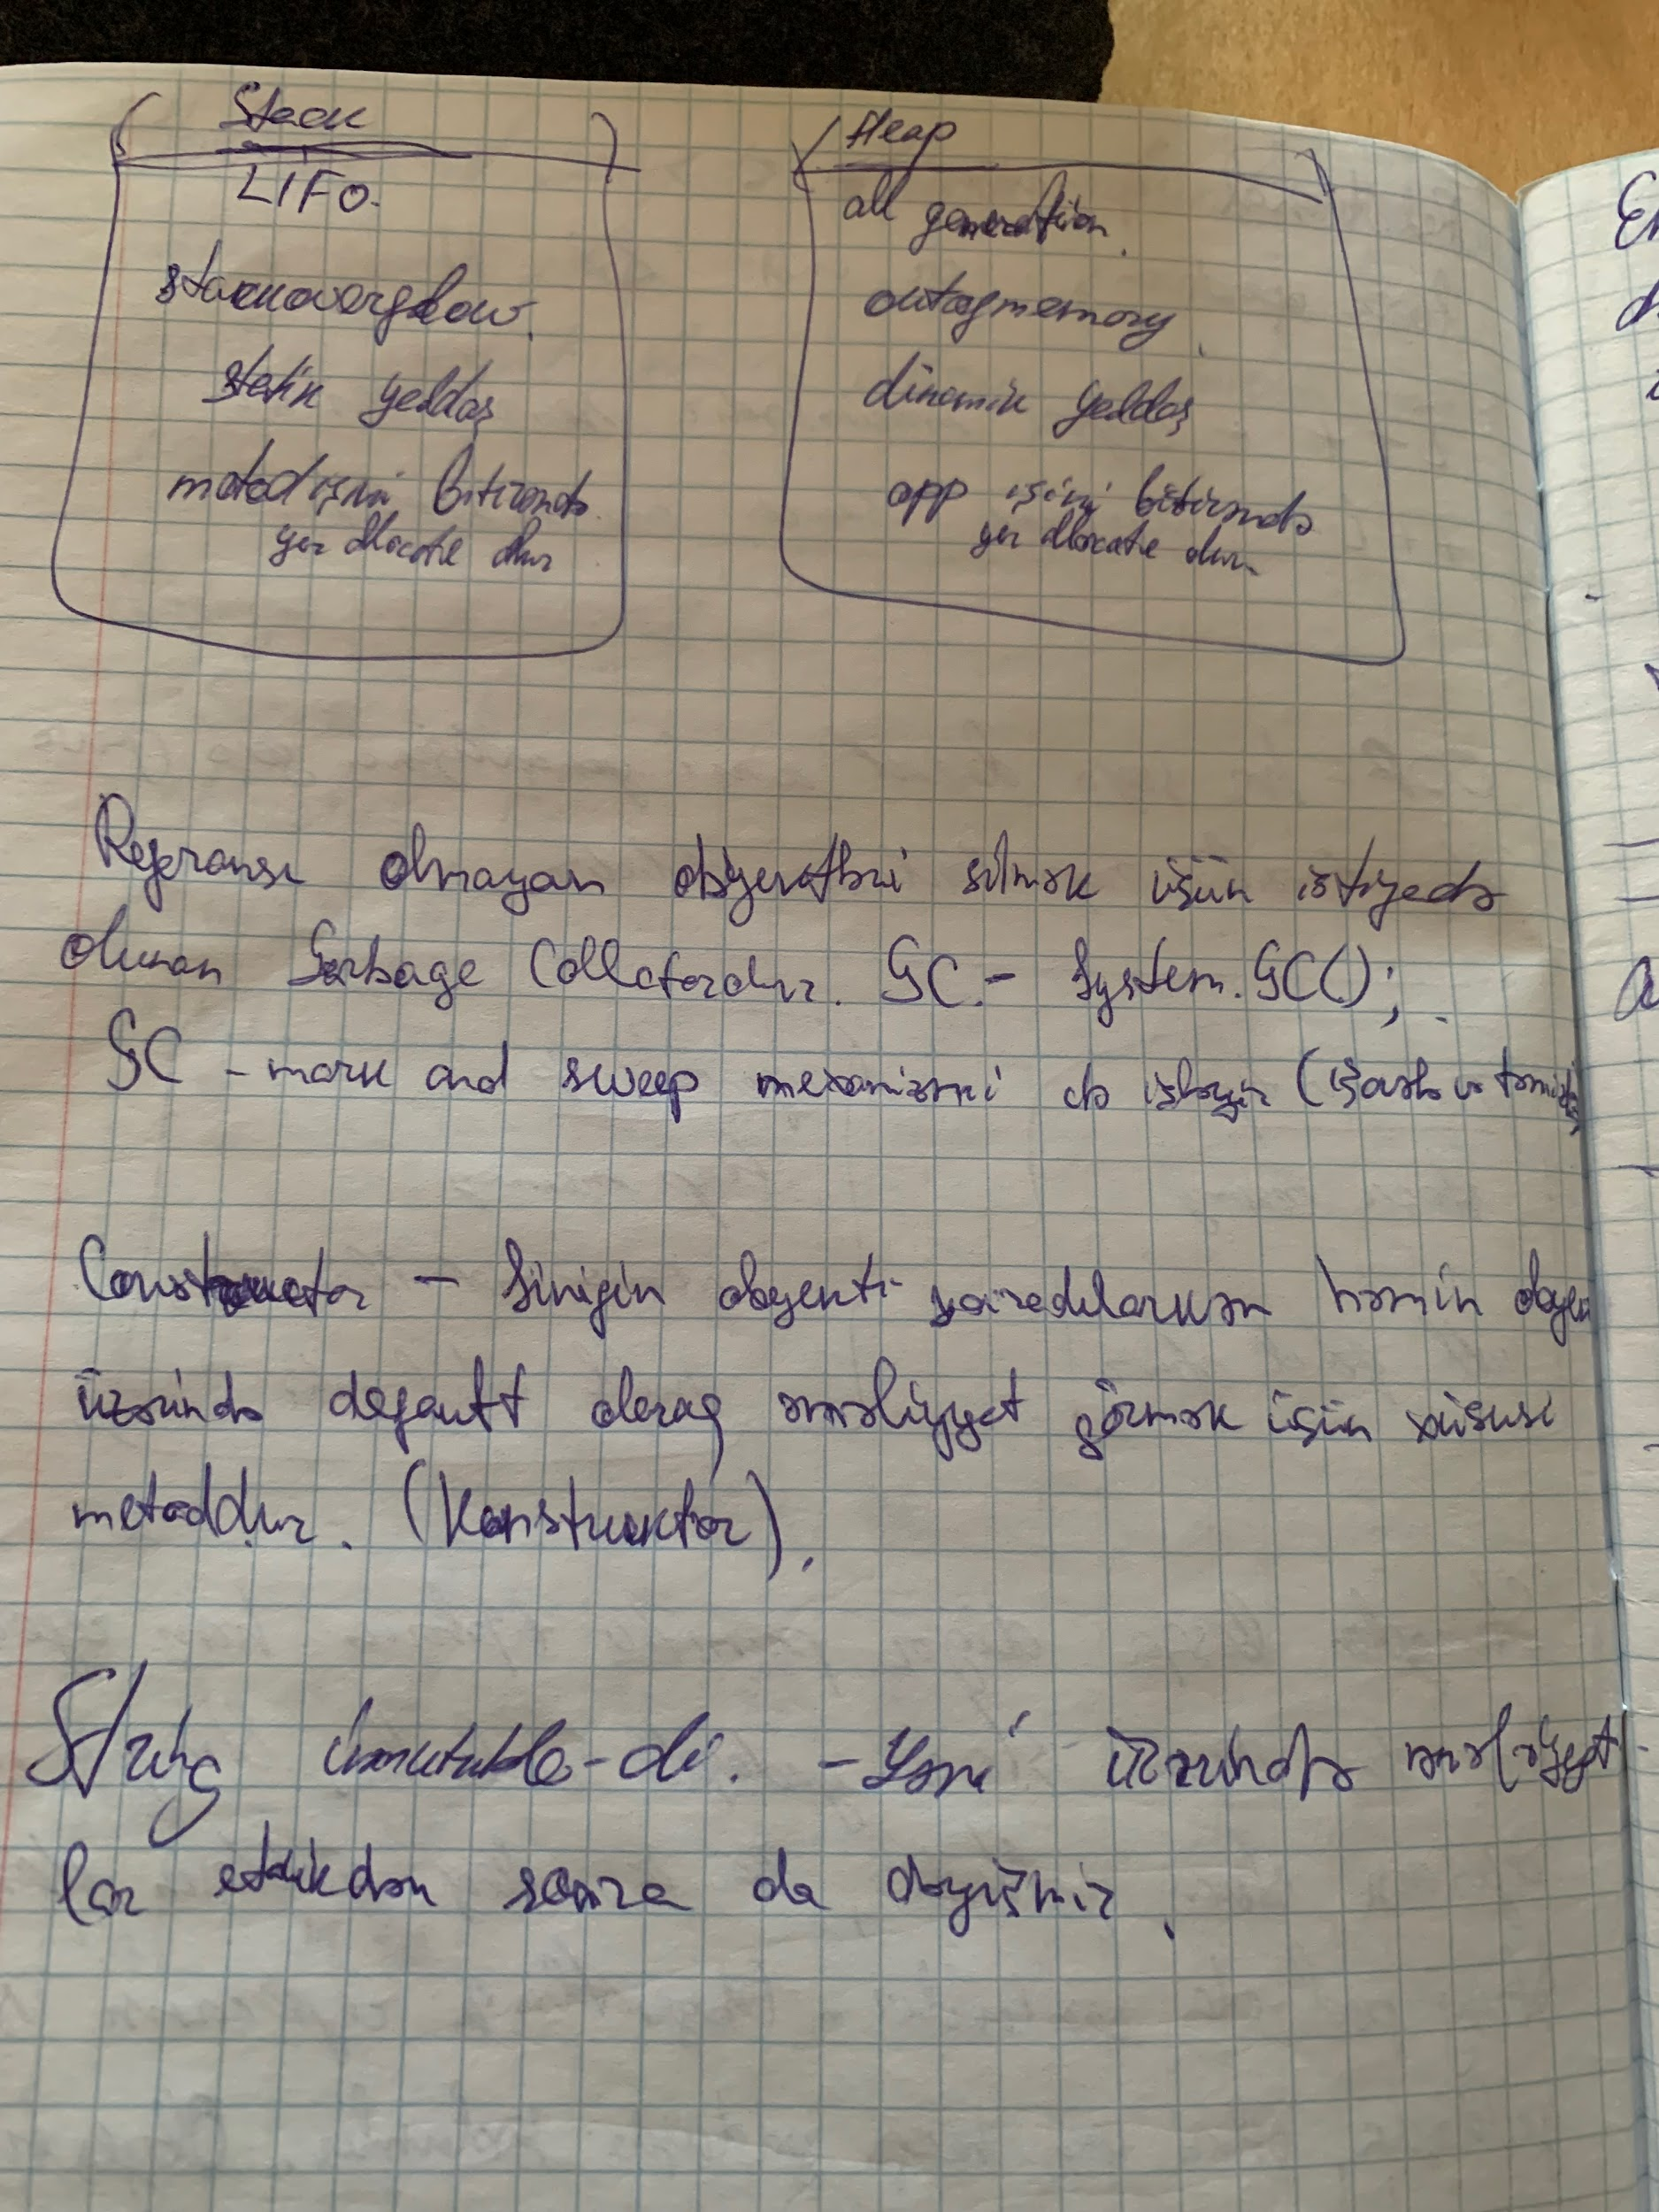 Stack
LIFO.
stackoverflow.
statik yaddaş
metod işini bitirəndə
yer allocate olur
Heap
all generation.
outofmemory
dinamik yaddaş
app işini bitirəndə
yer allocate olur.
Referansı olmayan obyektləri silmək üçün istifadə
olunan Garbage Collectordur. GC.- System.GC();
GC - mark and sweep mexanizmi ilə işləyir (işarələ və təmizlə)
Constructor - Sinifin obyekti yaradılarkən həmin obyek
üzərində default olaraq əməliyyat görmək üçün xüsusi
metoddur. (Konstruktor).
String immutable-dı. - Yəni üzərində əməliyyat-
lar etdikdən sonra da dəyişmir.